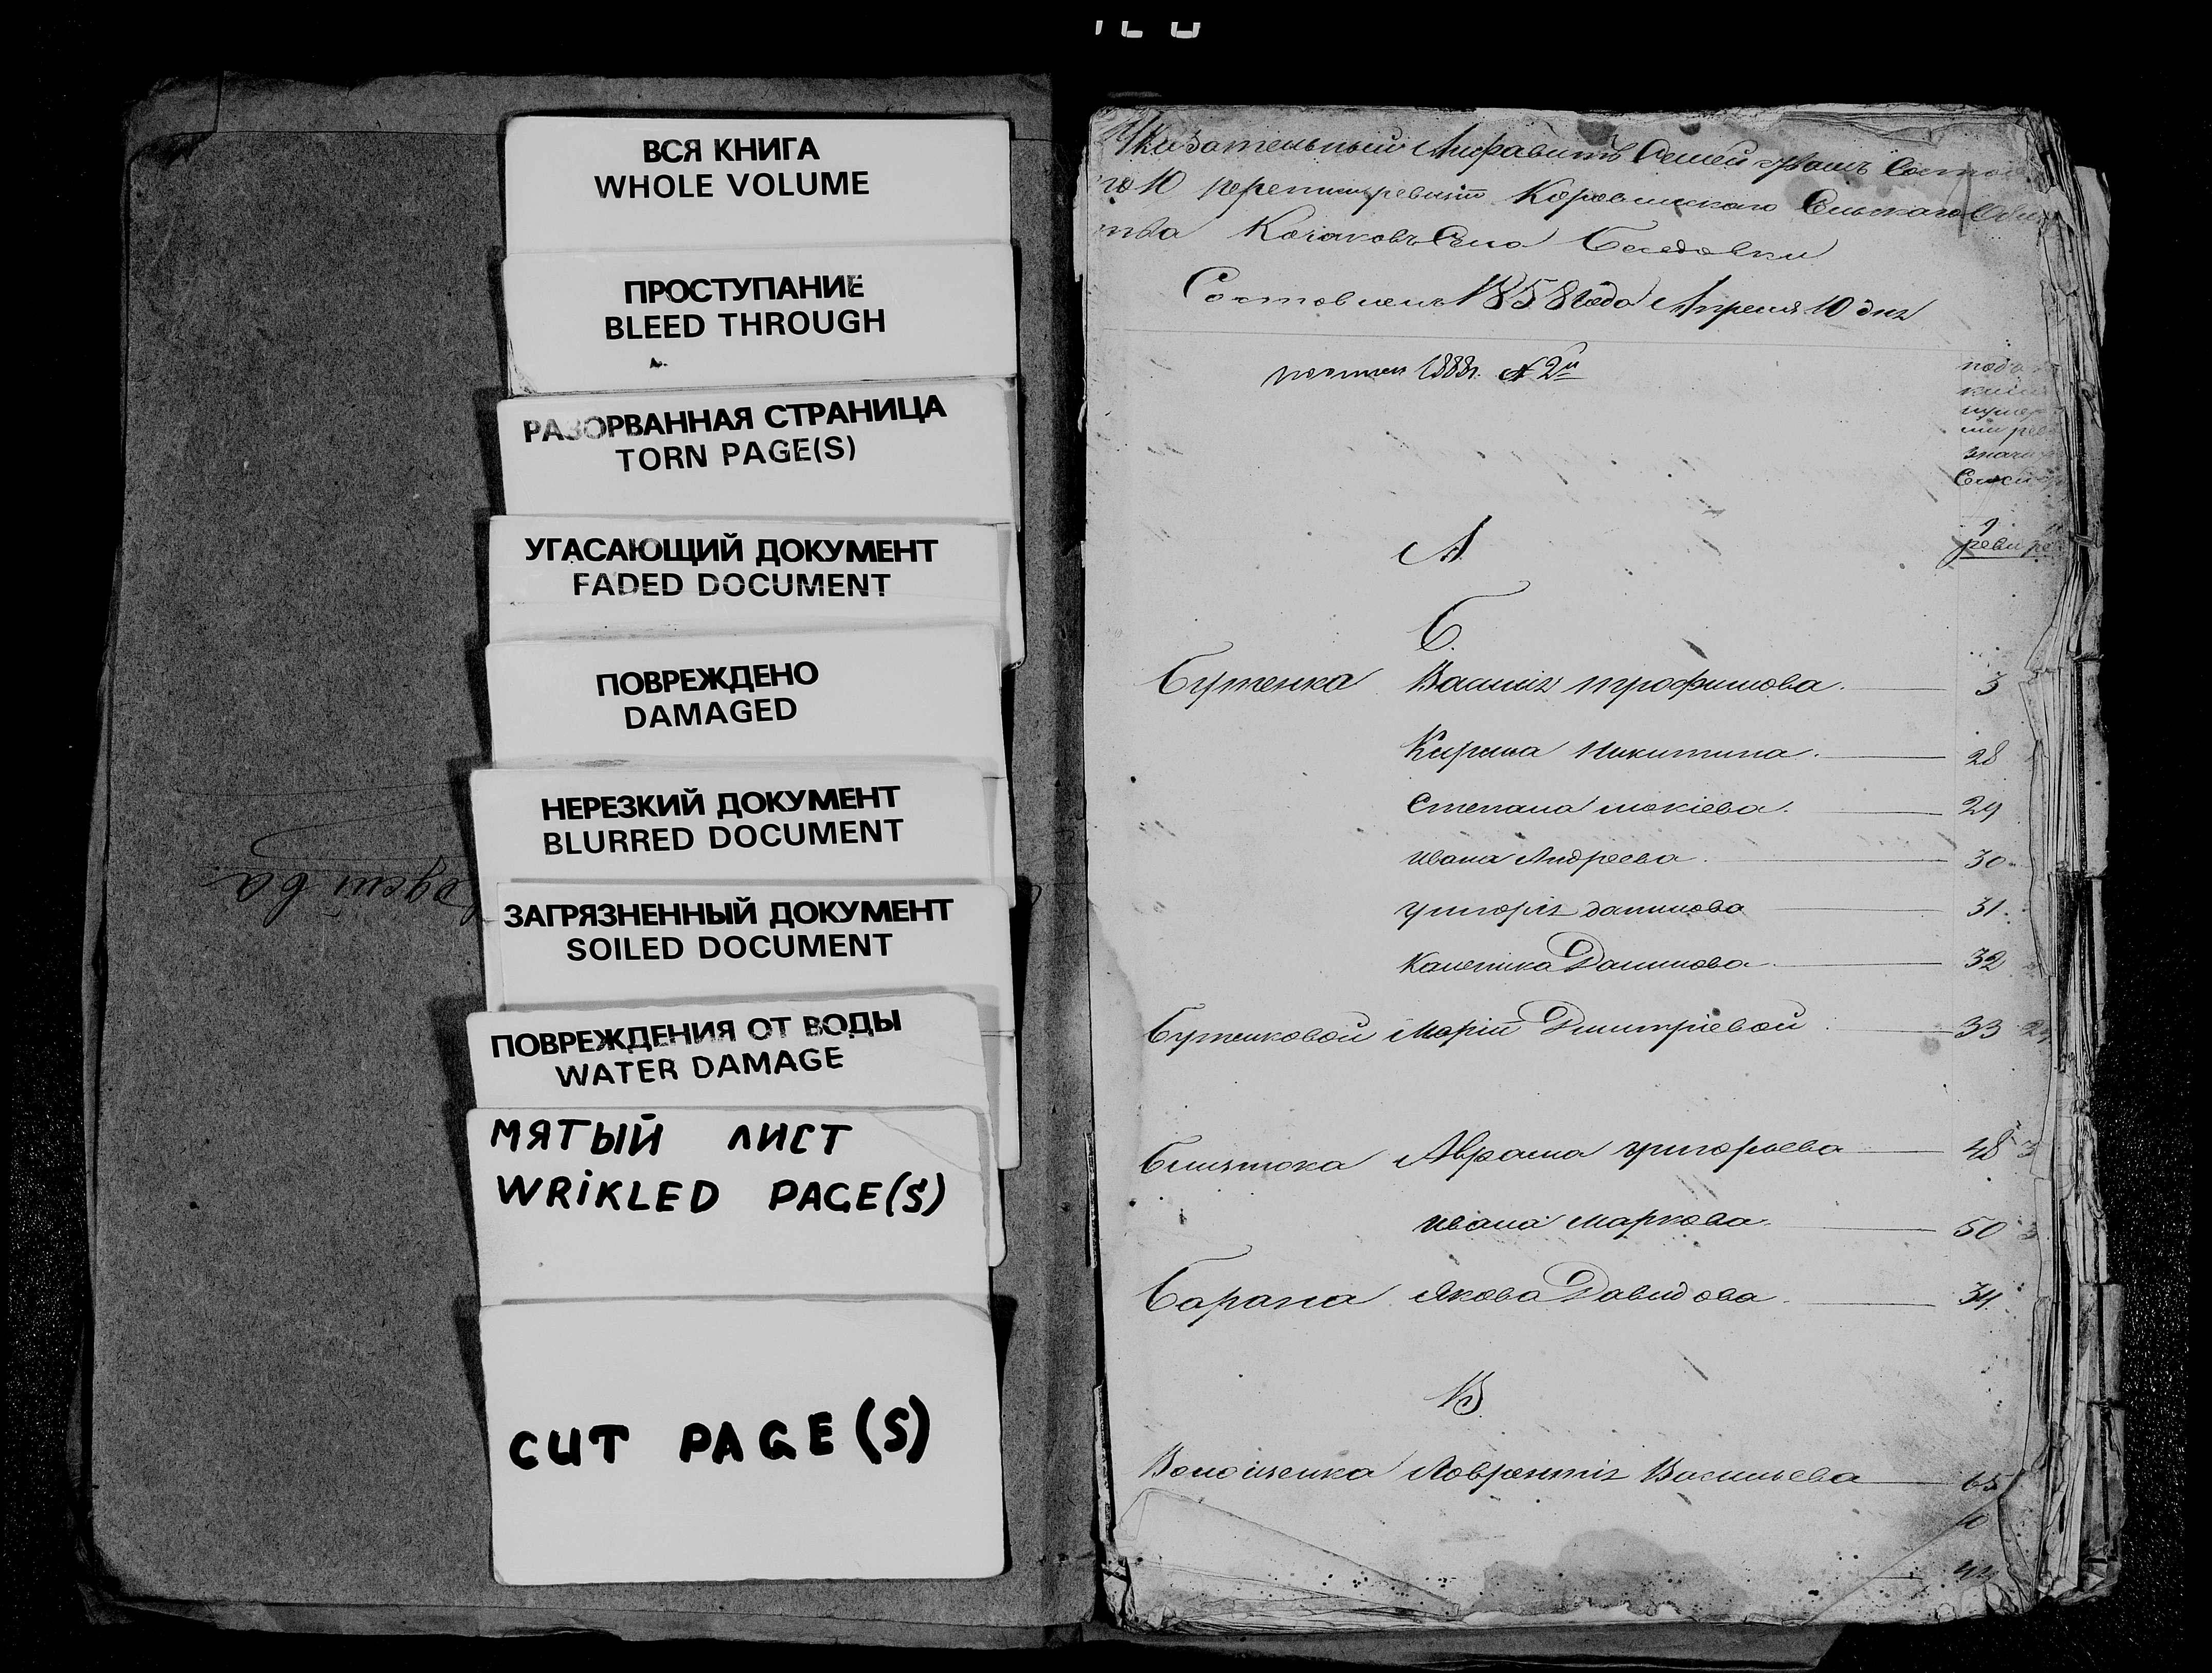 ВСЯ КНИГА
WHOLE VOLUME
ПРОСТУПАНИЕ
BLEED THROUGH
РАЗОРВАННАЯ СТРАНИЦА
TORN PAGE(S)
УГАСАЮЩИЙ ДОКУМЕНТ
FADED DOCUMENT
ПОВРЕЖДЕНО
DAMAGED
НЕРЕЗКИЙ ДОКУМЕНТ
BLURRED DOCUMENT
ЗАГРЯЗНЕННЫЙ ДОКУМЕНТ
SOILED DOCUMENT
ПОВРЕЖДЕНИЯ ОТ ВОДЫ
WATER DAMAGE
МЯТЫЙ ЛИСТ
WRIKLED PAGE(S)
CUT PAGE(S)
Указательный Алфавитъ Семей
10 переписи
Козаковъ Села
Составленъ 1858 года Апреля 10 дня
1883г. № 2й
А.
Б.
Бутенка Василія трофимова. 3
Кирила Никитина. 28
Степана мокіева. 29
ивана Андреева. 30
григорія данилова 31.
Калетика Данилова 32
Бутенковой Маріи Дмитріевой 33
Аврама григорьева 48
ивана маркова 50
Барана Якова Давидова 34
В.
Волошенка Лаврентія Васильева 65